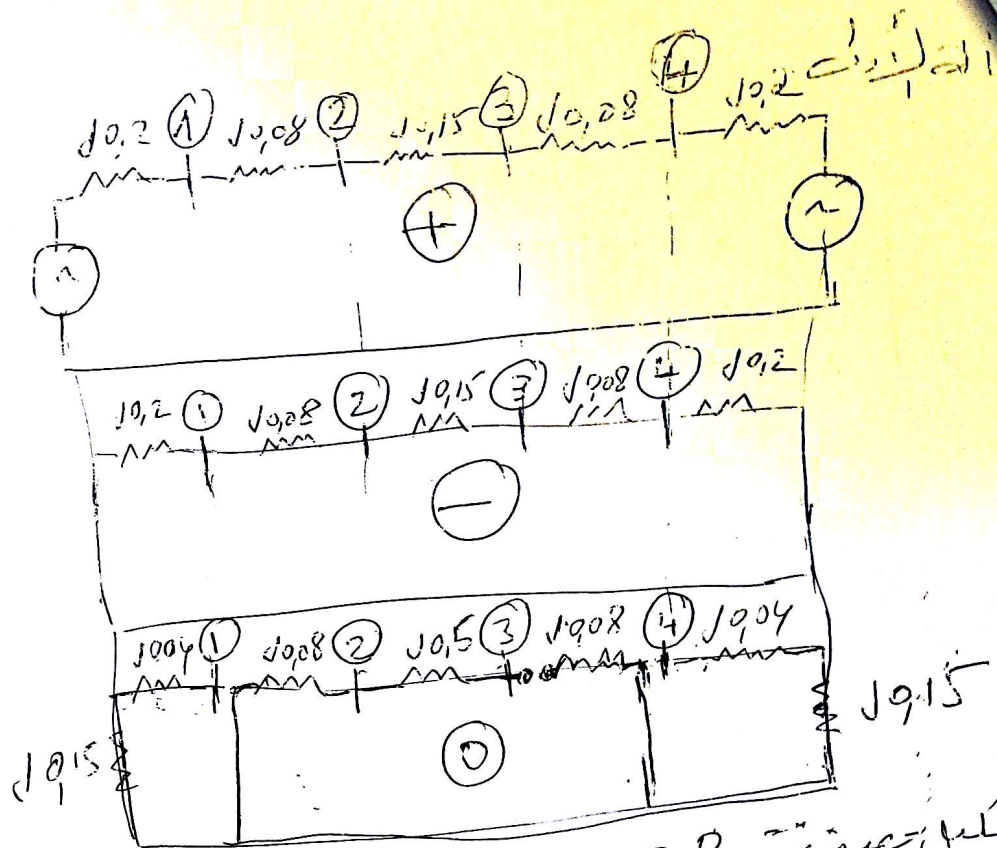 j0,2 ① j0,08 ② j0,15 ③ j0,08 ④ j0,2
+
j0,2 ① j0,08 ② j0,15 ③ j0,08 ④ j0,2
−
j0,04 ① j0,08 ② j0,5 ③ j0,08 ④ j0,04
j0,15 0 j0,15